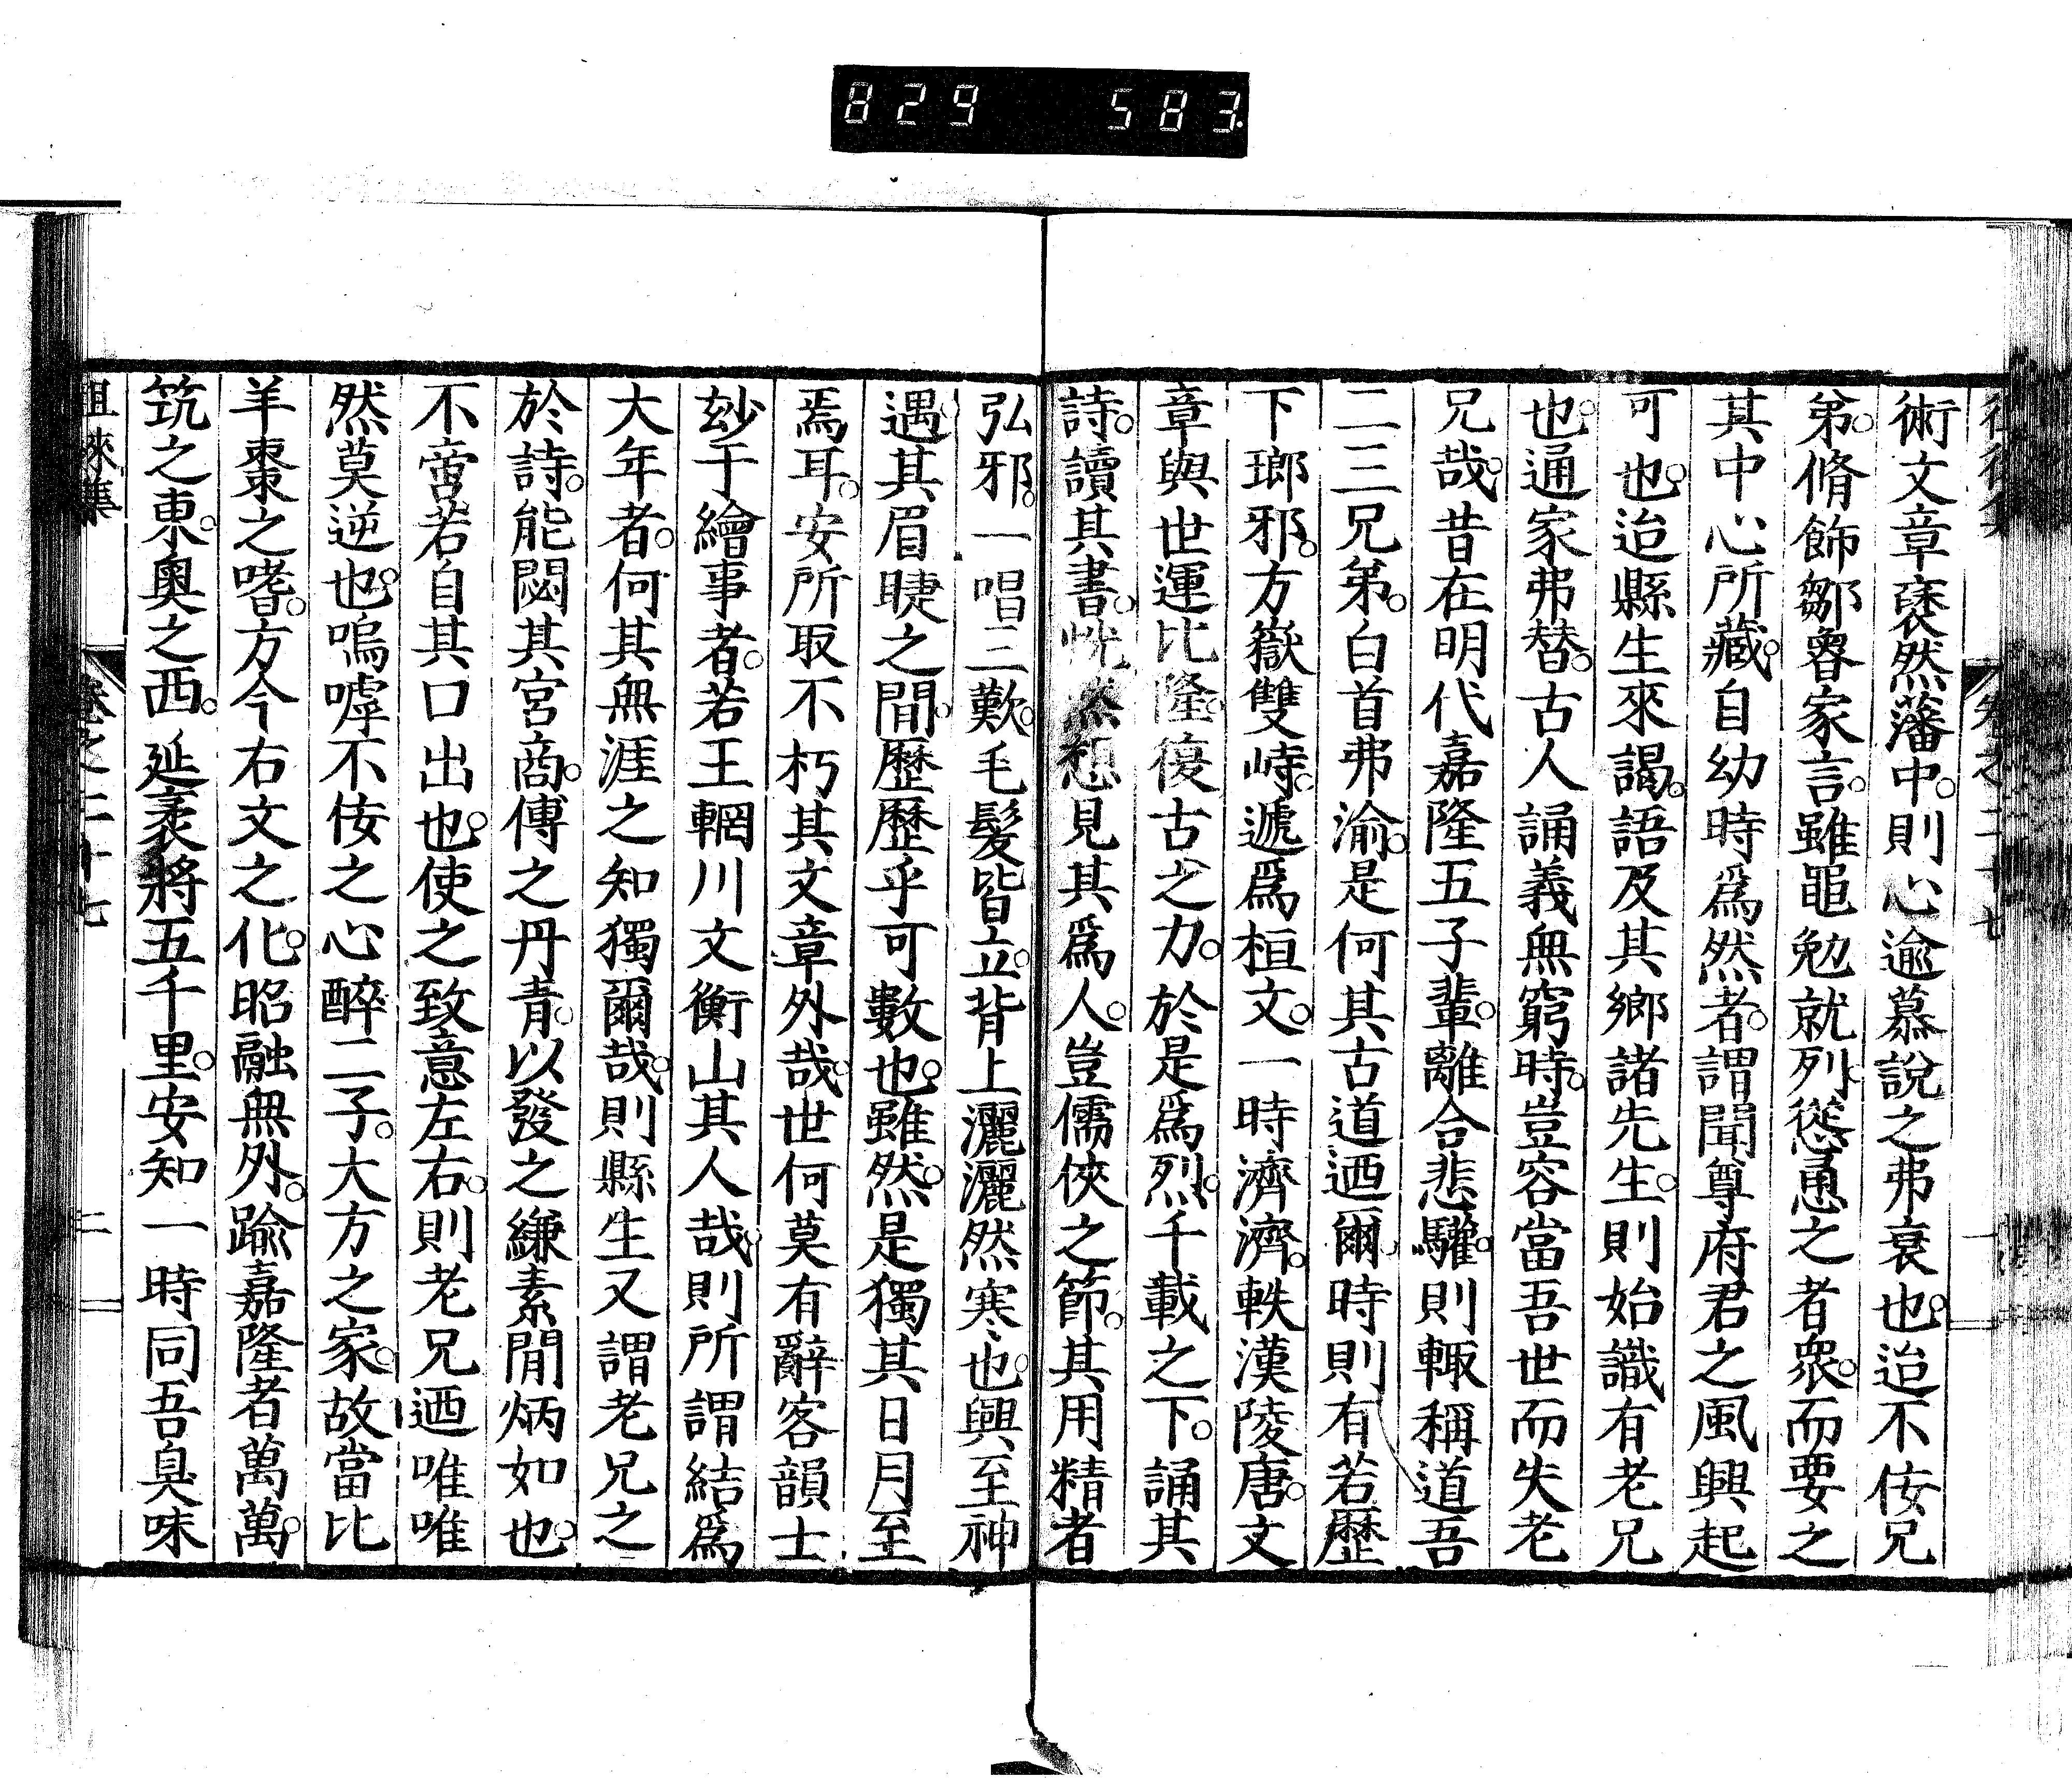 829 583
術文章褎然藩中。則心逾慕說之弗衰也。迨不佞兄
弟。脩飾鄒魯家言。雖黽勉就列。慫慂之者衆。而要之
其中心所藏。自幼時爲然者。謂聞尊府君之風興起
可也。迨縣生來謁。語及其鄉諸先生。則始識有老兄
也。通家弗替。古人誦義無窮時。豈容當吾世而失老
兄哉。昔在明代嘉隆五子輩。離合悲驩。則輙稱道吾
二三兄弟。白首弗渝。是何其古道迺爾。時則有若歷
下瑯邪。方嶽雙峙。遞爲桓文。一時濟濟。軼漢陵唐。文
章與世運比隆。復古之力。於是爲烈。千載之下。誦其
詩。讀其書。恍然想見其爲人。豈儒俠之節。其用精者
弘邪。一唱三歎。毛髮皆立。背上灑灑然寒也。興至神
遇。其眉睫之間。歷歷乎可數也。雖然。是獨其日月至
焉耳。安所取不朽其文章外哉。世何莫有辭客韻士
玅于繪事者。若王輞川文衡山其人哉。則所謂結爲
大年者。何其無涯之知獨爾哉。則縣生又謂老兄之
於詩。能閟其宮商。傳之丹青。以發之縑素閒炳如也。
不啻若自其口出也。使之致意左右。則老兄迺唯唯
然莫逆也。嗚嘑不佞之心醉二子。大方之家。故當比
羊棗之嗜。方今右文之化。昭融無外。踰嘉隆者萬萬。
筑之東。奧之西。延袤將五千里。安知一時同吾臭味
徂徠集 卷之二十七 二